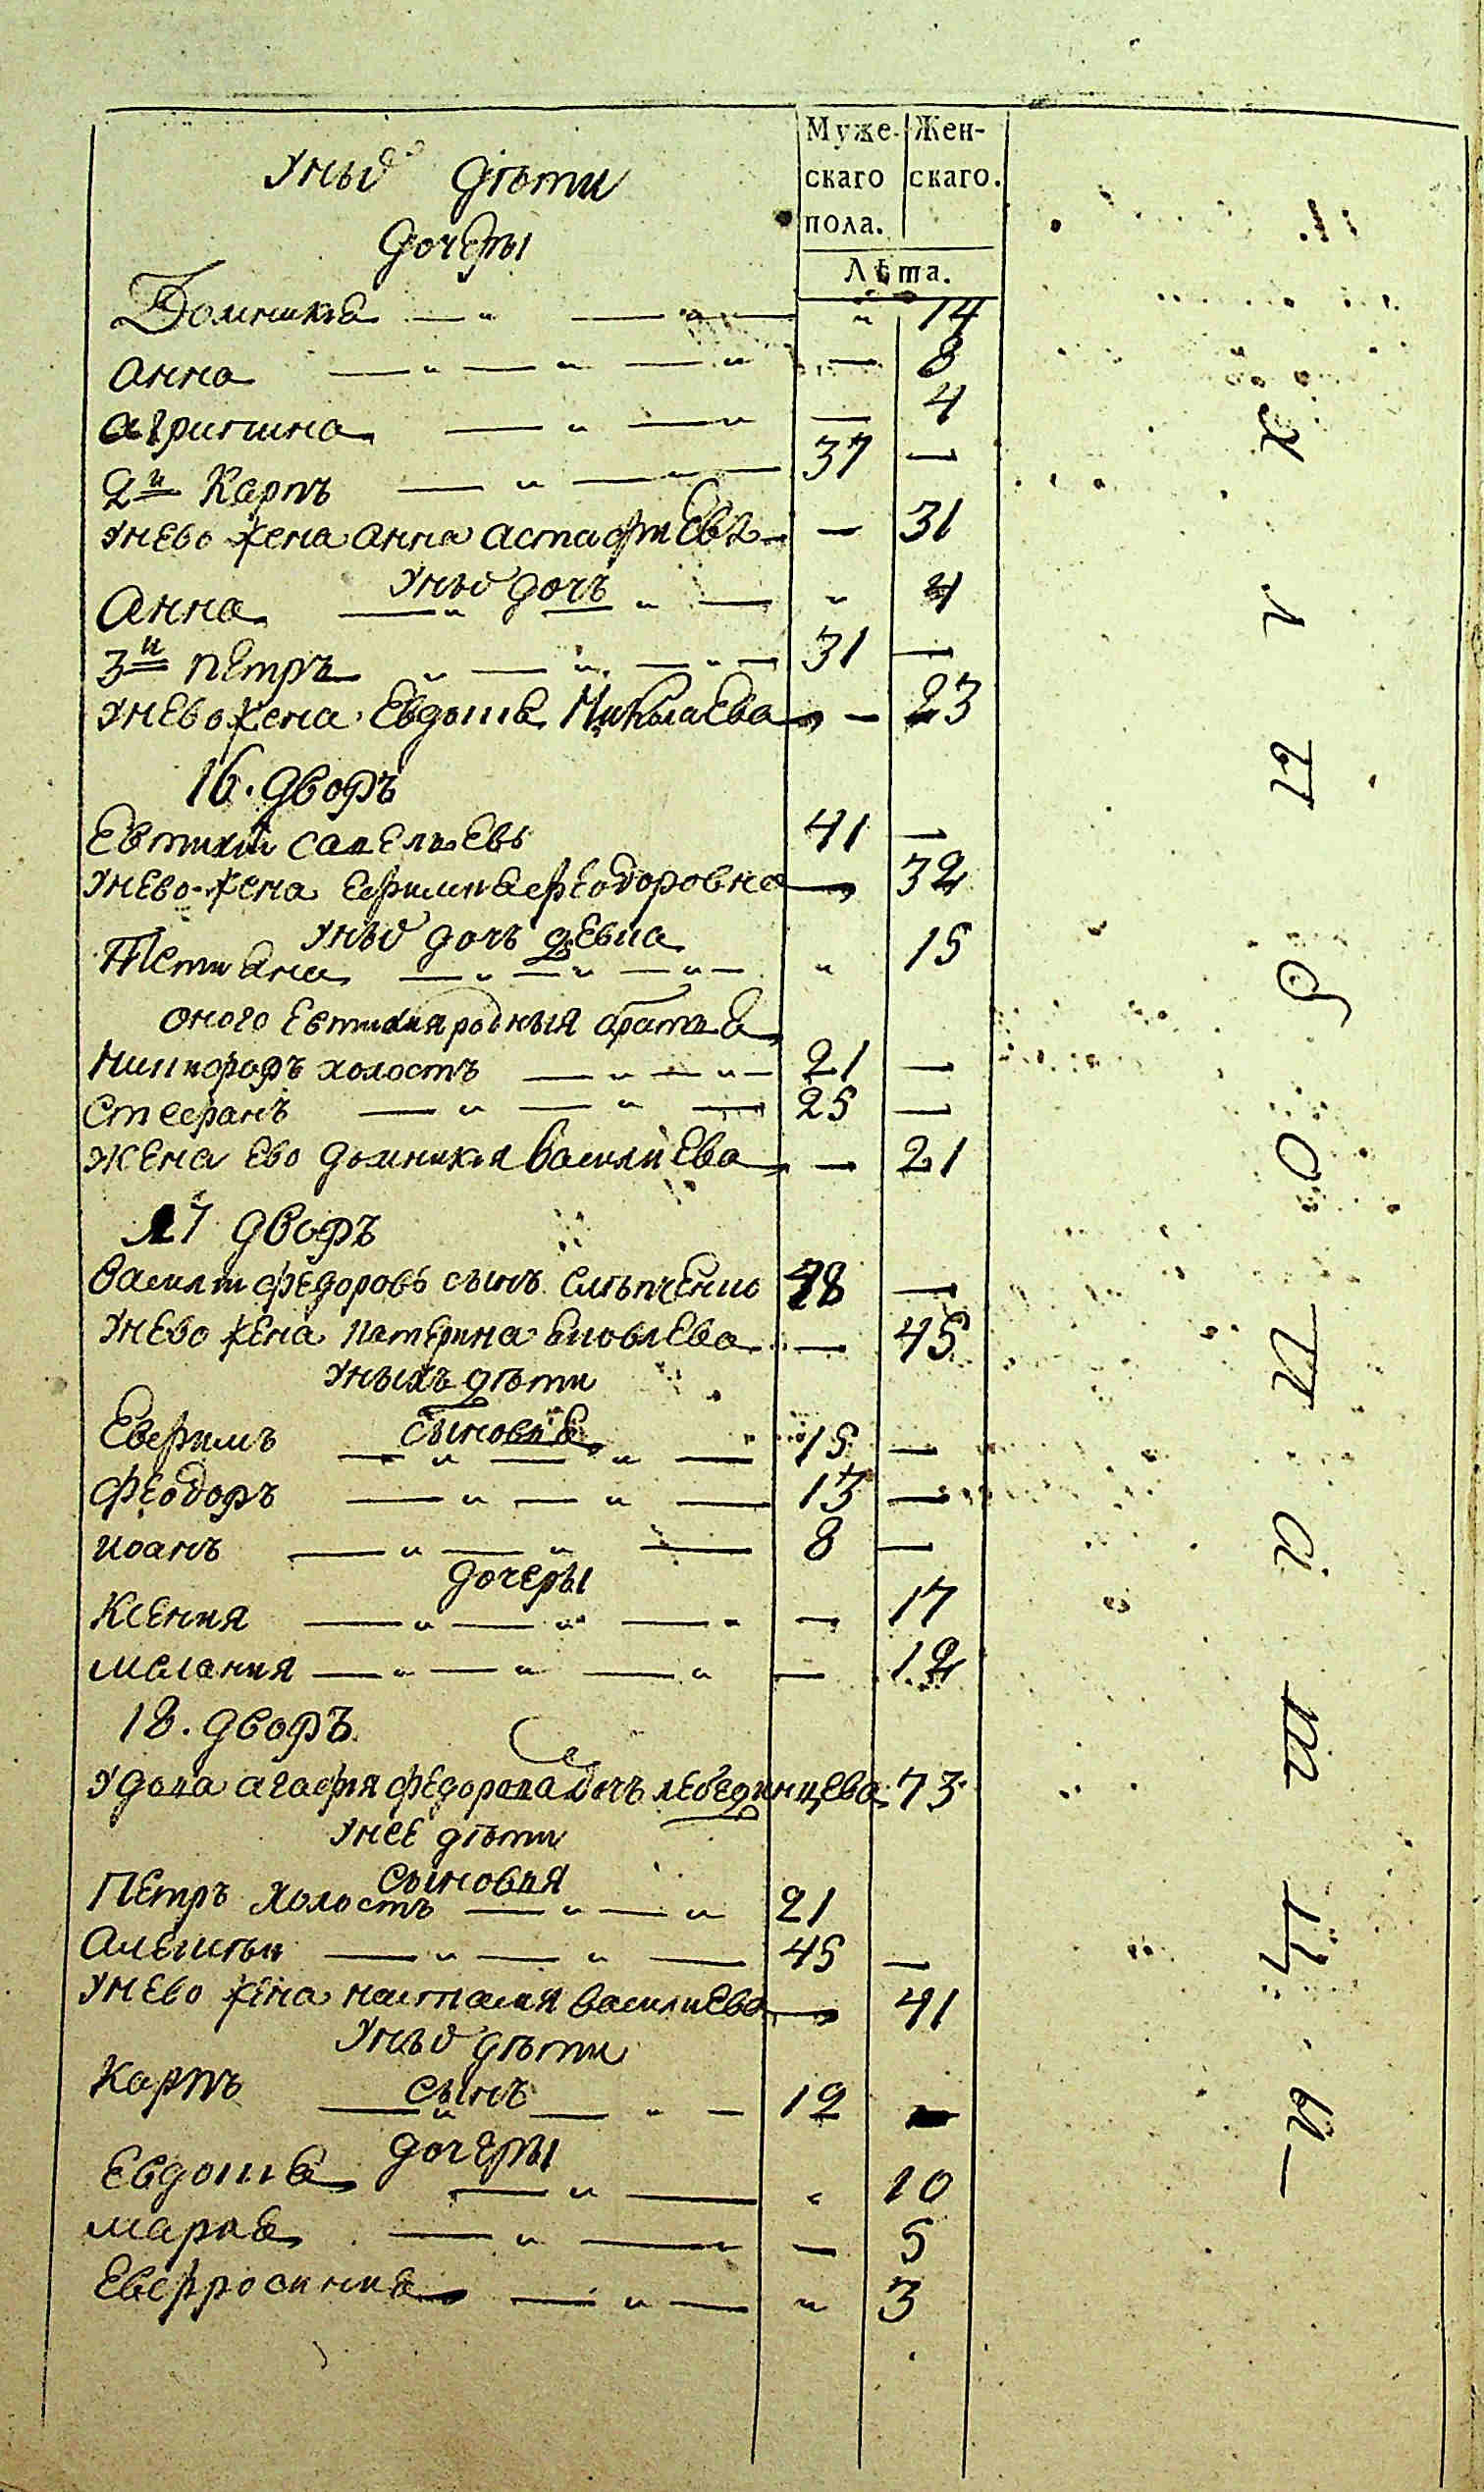 Муже- Жен-
скаго скаго.
пола.
Лѣта.
Уныхъ дѣти
дочеры
Домникіа " 14
Анна — 8
Агрипина — 4
2й Карпъ 37 —
Унево жена Анна Астафіева — 31
Уныхъ дочь
Анна " 4
3й Петръ 31 —
Унево жена Евдокіа Николаева — 23
16. дворъ
Евтихій Савельевъ 41 —
Унево жена Ефиміа Феодоровна — 32
Уныхъ дочь девка
Тетиана " 15
оного Евтихия родныя братьа
Никифоръ холостъ 21 —
Стефанъ 25 —
Жена ево Домникия Василиева — 21
17 дворъ
Василій Федоровъ сынъ 48 —
Унево жена Катерина Яковлева — 45
Уныхъ дѣти
сыновья
Евфимъ 15 —
Феодоръ 13 —
Иоанъ 8 —
дочеры
Ксения — 17
Мелания — 12
18. дворъ
Удова Агафия Федорова дочь Лебединцева 73
Унее дѣти
сыновия
Петръ холостъ 21
Алексѣй 45 —
Унево жена Настасия Василиева — 41
Уныхъ дѣти
сынъ
Карпъ 12 —
дочеры
Евдокіа " 10
Мариа — 5
Евфросиниа " 3